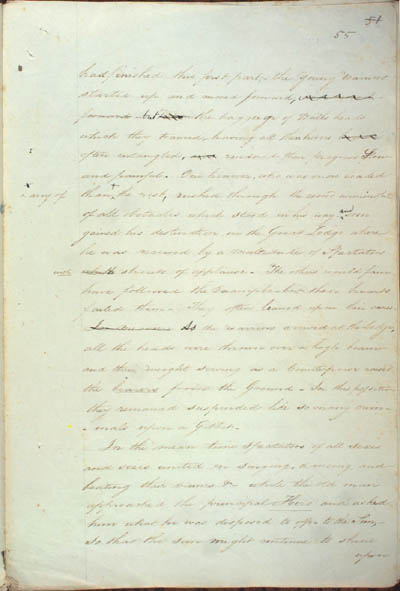 54
55
had finished this first part, the young warriors
started up and moved forward,
forward but the baggage of Bulls heads
which they trained, having at their horns
often entangled, and rendered their progress slow
and painful. One however, who was more loaded
any of
than the rest, rushed through the crowd
of all obstacles which stood in his way and soon
gained his destination in the Great Lodge where
he was received by a multitude of Spectators
with
with shouts of applause. The others would fain
have followed the example but their hearts
failed them. They often leaned upon
As the warriors arrived at the Lodge
all the heads were thrown over a high beam
and their weight serving as a Counterpoise raised
the braves from the Ground. In this position
they remained suspended like so many ani-
mals upon a Gibbet.
In the mean time Spectators of all sexes
and sizes united in singing, dancing and
beating their drums &c while the old man
approached the principal Hero and asked
him what he was disposed to offer to the Sun,
so that the Sun might continue to shine
upon